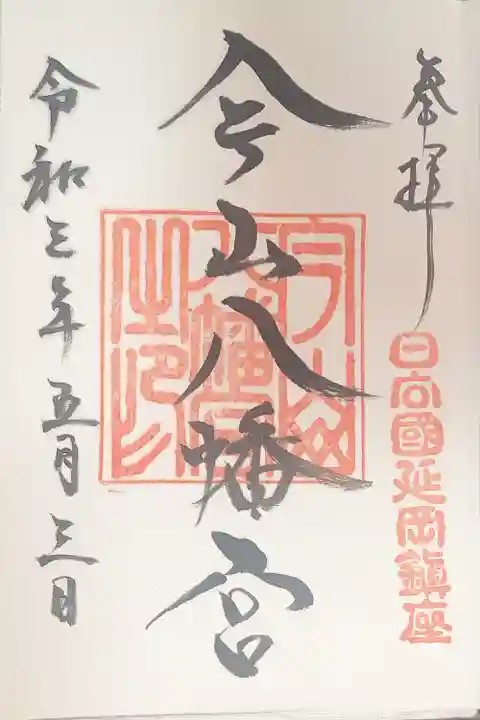 奉拝
日向國延岡鎮座
今山八幡宮
今山八幡宮之印
令和三年五月三日